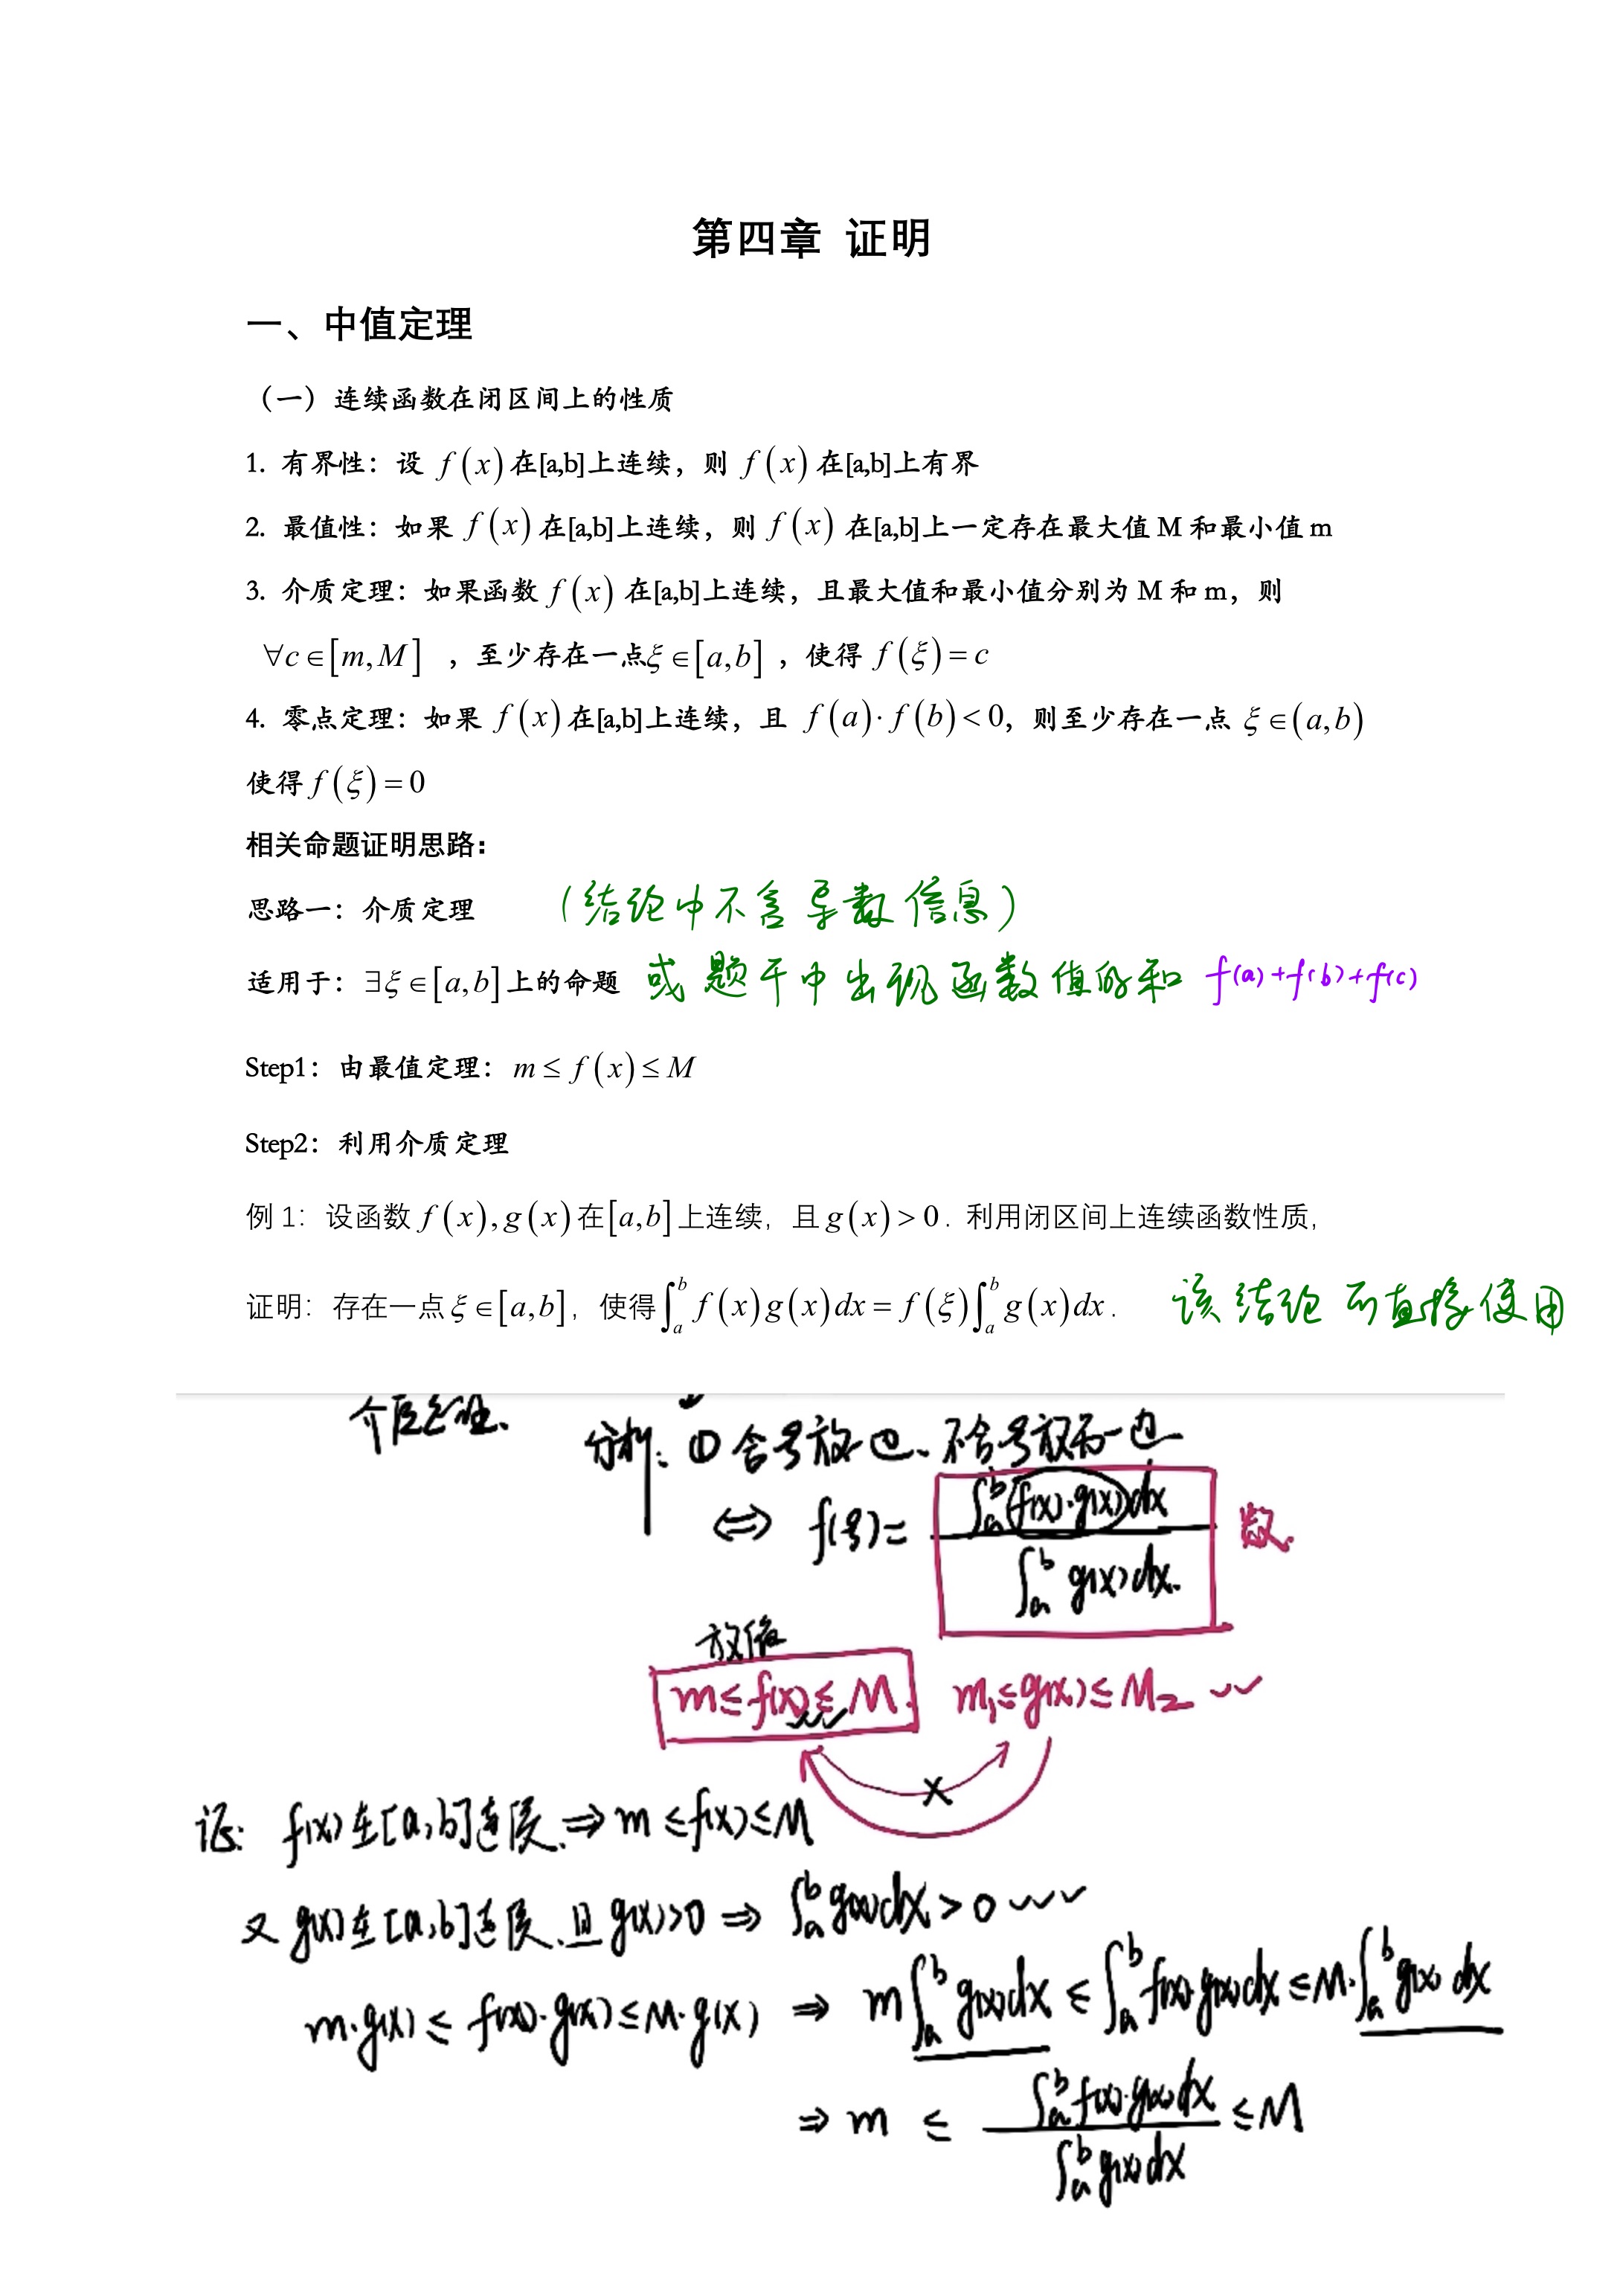 第四章 证明
一、中值定理
（一）连续函数在闭区间上的性质
1. 有界性：设 f(x)在[a,b]上连续，则 f(x)在[a,b]上有界
2. 最值性：如果 f(x)在[a,b]上连续，则 f(x) 在[a,b]上一定存在最大值 M 和最小值 m
3. 介质定理：如果函数 f(x) 在[a,b]上连续，且最大值和最小值分别为 M 和 m，则
∀c∈[m,M] ，至少存在一点ξ∈[a,b] ，使得 f(ξ)=c
4. 零点定理：如果 f(x)在[a,b]上连续，且 f(a)·f(b)<0，则至少存在一点 ξ∈(a,b)
使得 f(ξ)=0
相关命题证明思路：
思路一：介质定理 （结论中不含导数信息）
适用于：∃ξ∈[a,b]上的命题 或题干中出现函数值的和 f(a)+f(b)+f(c)
Step1：由最值定理：m≤f(x)≤M
Step2：利用介质定理
例 1：设函数 f(x),g(x)在[a,b]上连续，且g(x)>0. 利用闭区间上连续函数性质，
证明：存在一点ξ∈[a,b]，使得∫_a^b f(x)g(x)dx=f(ξ)∫_a^b g(x)dx. 该结论可直接使用
分析：① 含号放一边、不含号放另一边
⇔ f(ξ)= ∫_a^b (f(x)·g(x))dx / ∫_a^b g(x)dx. 数.
放缩
m≤f(x)≤M. m₁≤g(x)≤M₂
×
证: f(x)在[a,b]连续.⇒m≤f(x)≤M
又 g(x)在[a,b]连续.且g(x)>0 ⇒ ∫_a^b g(x)dx>0
m·g(x)≤f(x)·g(x)≤M·g(x) ⇒ m∫_a^b g(x)dx≤∫_a^b f(x)·g(x)dx≤M·∫_a^b g(x)dx
⇒ m ≤ ∫_a^b f(x)·g(x)dx / ∫_a^b g(x)dx ≤M